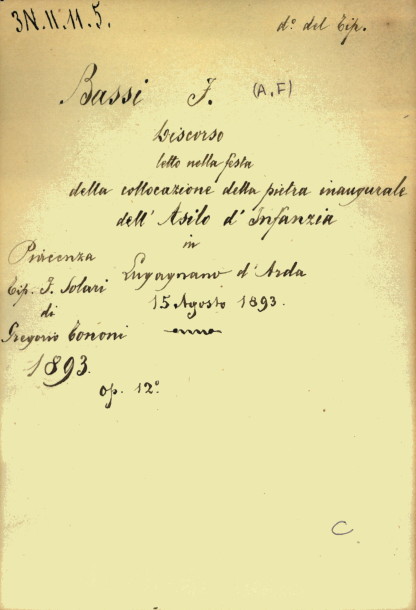 3N.11.11.5.
d°. del Tip.
Bassi J. (A.F)
Discorso
letto nella festa
della collocazione della pietra inaugurale
dell' Asilo d' Infanzia
in
Lugagnano d' Arda
15 Agosto 1893.
Piacenza
Tip. J. Solari
di
Gregorio Tononi
1893.
op. 12°
C